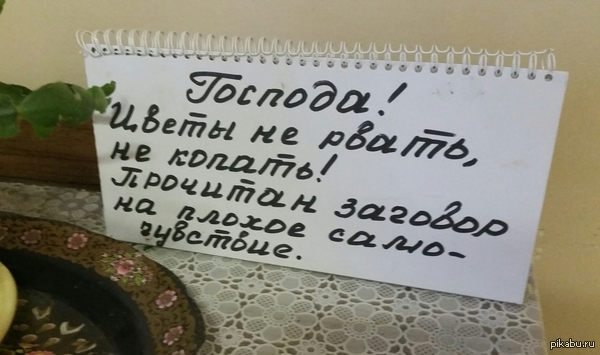 Господа!
Цветы не рвать,
не копать!
Прочитан заговор
на плохое само-
чувствие.
pikabu.ru